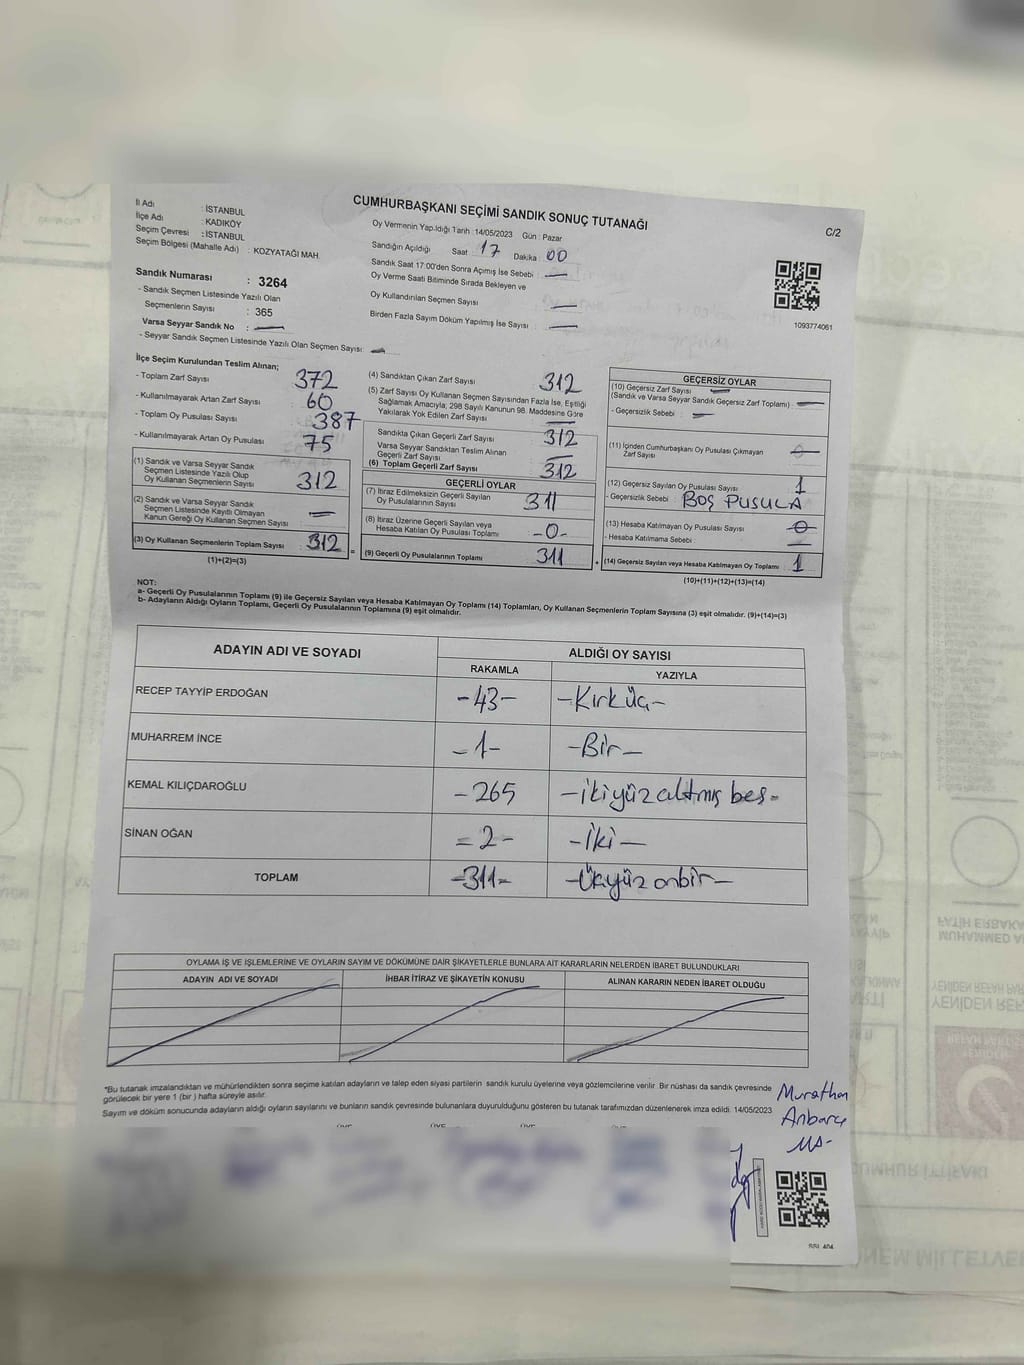 CUMHURBAŞKANI SEÇİMİ SANDIK SONUÇ TUTANAĞI
C/2
İl Adı : İSTANBUL
İlçe Adı : KADIKÖY
Seçim Çevresi : İSTANBUL
Seçim Bölgesi (Mahalle Adı) : KOZYATAĞI MAH.
Oy Vermenin Yapıldığı Tarih : 14/05/2023 Gün : Pazar
Sandığın Açıldığı Saat 17 Dakika 00
Sandık Saat 17:00'den Sonra Açımış İse Sebebi
Oy Verme Saati Bitiminde Sırada Bekleyen ve
Oy Kullandırılan Seçmen Sayısı
Birden Fazla Sayım Döküm Yapılmış İse Sayısı
1093774061
Sandık Numarası : 3264
- Sandık Seçmen Listesinde Yazılı Olan
Seçmenlerin Sayısı : 365
Varsa Seyyar Sandık No :
- Seyyar Sandık Seçmen Listesinde Yazılı Olan Seçmen Sayısı:
İlçe Seçim Kurulundan Teslim Alınan;
- Toplam Zarf Sayısı 372
- Kullanılmayarak Artan Zarf Sayısı 60
- Toplam Oy Pusulası Sayısı 387
- Kullanılmayarak Artan Oy Pusulası 75
(1) Sandık ve Varsa Seyyar Sandık
Seçmen Listesinde Yazılı Olup
Oy Kullanan Seçmenlerin Sayısı : 312
(2) Sandık ve Varsa Seyyar Sandık
Seçmen Listesinde Kayıtlı Olmayan
Kanun Gereği Oy Kullanan Seçmen Sayısı :
(3) Oy Kullanan Seçmenlerin Toplam Sayısı : 312 =
(1)+(2)=(3)
(4) Sandıktan Çıkan Zarf Sayısı 312
(5) Zarf Sayısı Oy Kullanan Seçmen Sayısından Fazla İse, Eşitliği
Sağlamak Amacıyla; 298 Sayılı Kanunun 98. Maddesine Göre
Yakılarak Yok Edilen Zarf Sayısı
Sandıkta Çıkan Geçerli Zarf Sayısı 312
Varsa Seyyar Sandıktan Teslim Alınan
Geçerli Zarf Sayısı
(6) Toplam Geçerli Zarf Sayısı 312
GEÇERLİ OYLAR
(7) İtiraz Edilmeksizin Geçerli Sayılan
Oy Pusulalarının Sayısı 311
(8) İtiraz Üzerine Geçerli Sayılan veya
Hesaba Katılan Oy Pusulası Toplamı -0-
(9) Geçerli Oy Pusulalarının Toplamı 311 +
GEÇERSİZ OYLAR
(10) Geçersiz Zarf Sayısı
(Sandık ve Varsa Seyyar Sandık Geçersiz Zarf Toplamı) :
- Geçersizlik Sebebi :
(11) İçinden Cumhurbaşkanı Oy Pusulası Çıkmayan
Zarf Sayısı 0
(12) Geçersiz Sayılan Oy Pusulası Sayısı : 1
- Geçersizlik Sebebi : BOŞ PUSULA
(13) Hesaba Katılmayan Oy Pusulası Sayısı : 0
- Hesaba Katılmama Sebebi :
(14) Geçersiz Sayılan veya Hesaba Katılmayan Oy Toplamı : 1
(10)+(11)+(12)+(13)=(14)
NOT:
a- Geçerli Oy Pusulalarının Toplamı (9) ile Geçersiz Sayılan veya Hesaba Katılmayan Oy Toplamı (14) Toplamları, Oy Kullanan Seçmenlerin Toplam Sayısına (3) eşit olmalıdır. (9)+(14)=(3)
b- Adayların Aldığı Oyların Toplamı, Geçerli Oy Pusulalarının Toplamına (9) eşit olmalıdır.
ADAYIN ADI VE SOYADI ALDIĞI OY SAYISI
RAKAMLA YAZIYLA
RECEP TAYYİP ERDOĞAN -43- -Kırküç-
MUHARREM İNCE -1- -Bir-
KEMAL KILIÇDAROĞLU -265 -ikiyüzaltmış beş-
SİNAN OĞAN =2- -İki-
TOPLAM -311- -Üçyüz onbir-
OYLAMA İŞ VE İŞLEMLERİNE VE OYLARIN SAYIM VE DÖKÜMÜNE DAİR ŞİKAYETLERLE BUNLARA AİT KARARLARIN NELERDEN İBARET BULUNDUKLARI
ADAYIN ADI VE SOYADI İHBAR İTİRAZ VE ŞİKAYETİN KONUSU ALINAN KARARIN NEDEN İBARET OLDUĞU
*Bu tutanak imzalandıktan ve mühürlendikten sonra seçime katılan adayların ve talep eden siyasi partilerin sandık kurulu üyelerine veya gözlemcilerine verilir. Bir nüshası da sandık çevresinde
görülecek bir yere 1 (bir ) hafta süreyle asılır.
Sayım ve döküm sonucunda adayların aldığı oyların sayılarını ve bunların sandık çevresinde bulunanlara duyurulduğunu gösteren bu tutanak tarafımızdan düzenlenerek imza edildi. 14/05/2023
Murathan
ÜYE ÜYE ÜYE ÜYE